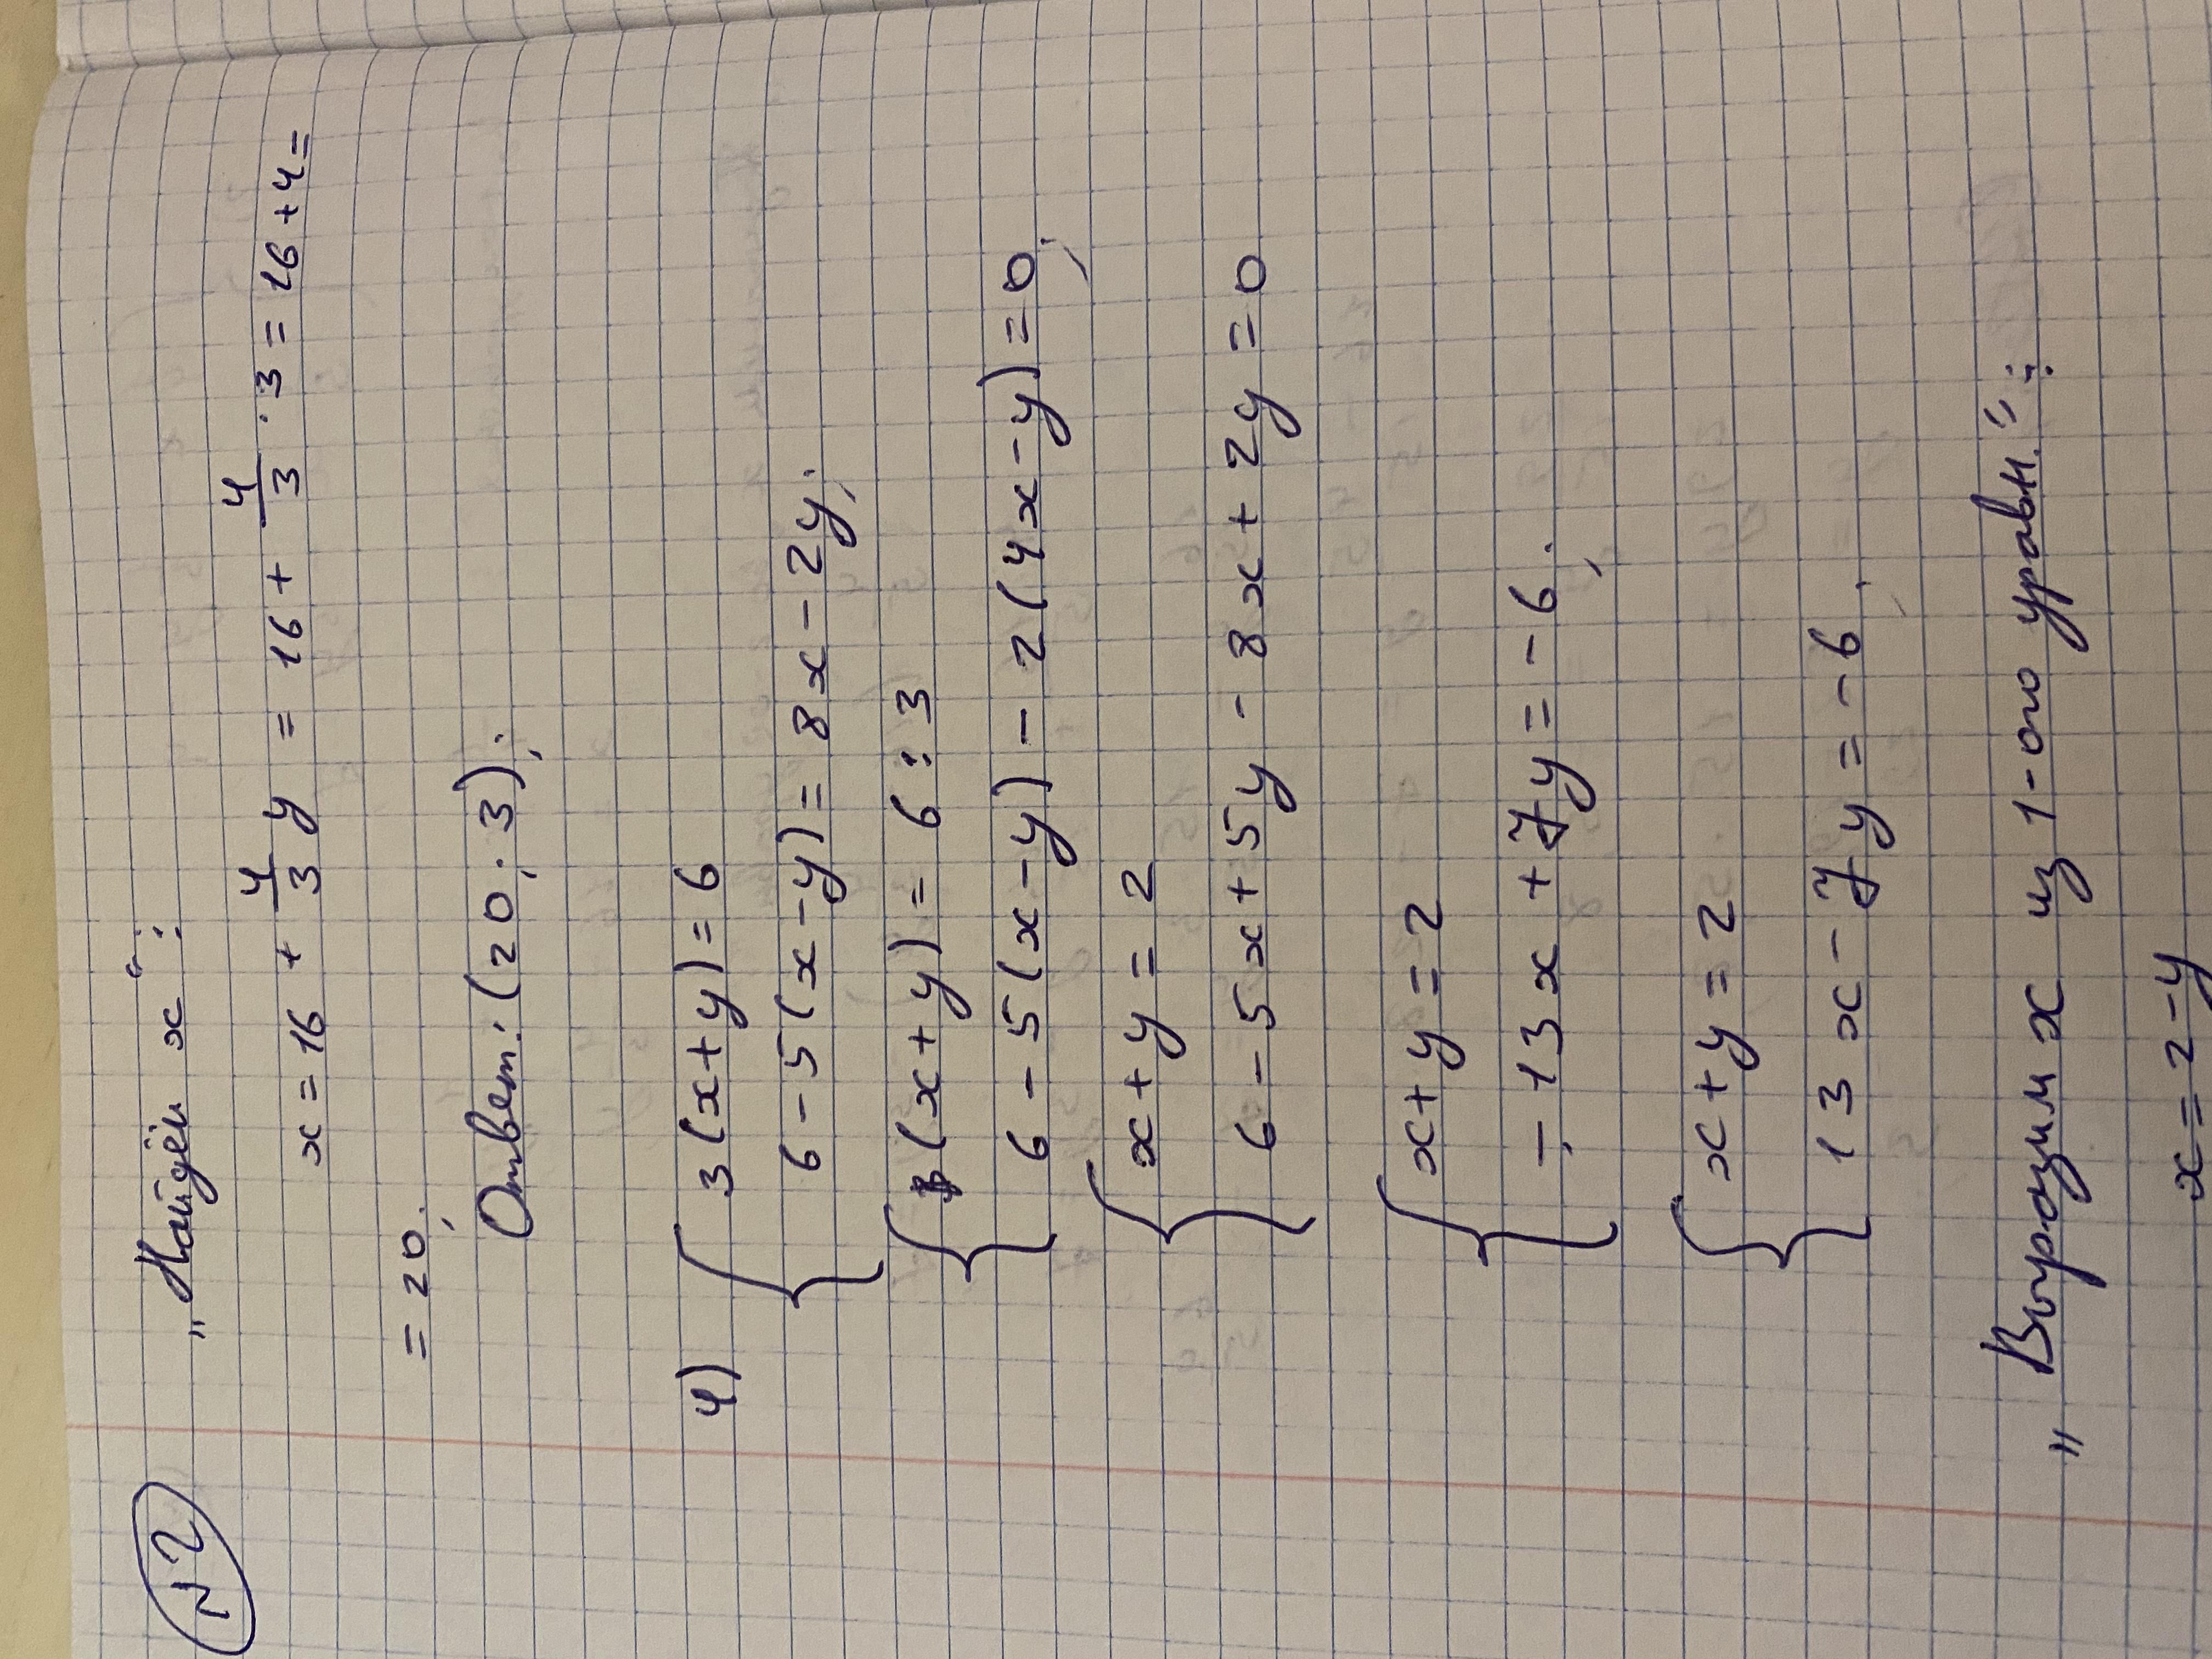 N2
„Найдём x“:
x = 16 + 4/3 y = 16 + 4/3 · 3 = 16 + 4 =
= 20;
Ответ: (20; 3);
4) { 3(x+y) = 6
6 - 5(x-y) = 8x - 2y;
{ (x+y) = 6 : 3
6 - 5(x-y) - 2(4x-y) = 0;
{ x + y = 2
6 - 5x + 5y - 8x + 2y = 0
{ x + y = 2
- 13x + 7y = -6;
{ x + y = 2
13x - 7y = -6,
„Выразим x из 1-ого уравн.“:
x = 2 - y